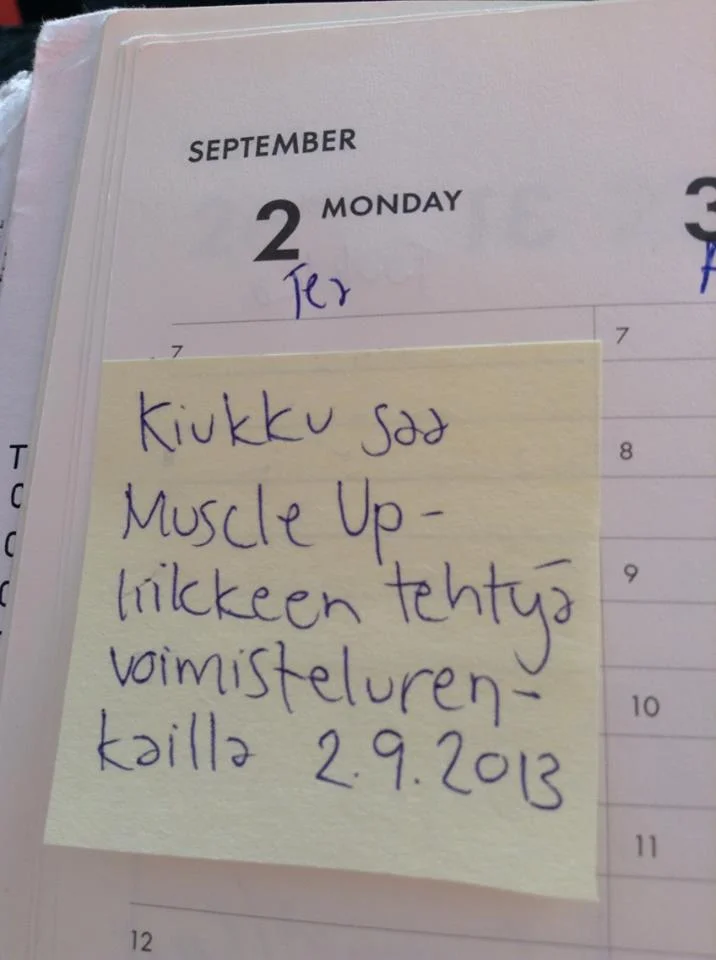 SEPTEMBER
2 MONDAY
3
Ter
7
7
8
9
10
11
12
Kiukku saa
Muscle Up-
liikkeen tehtyä
voimisteluren-
kailla 2.9.2013